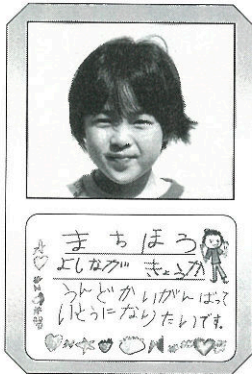 まちほう
よしなが きょうか
うんどかいがんばって
いとうになりたいです。